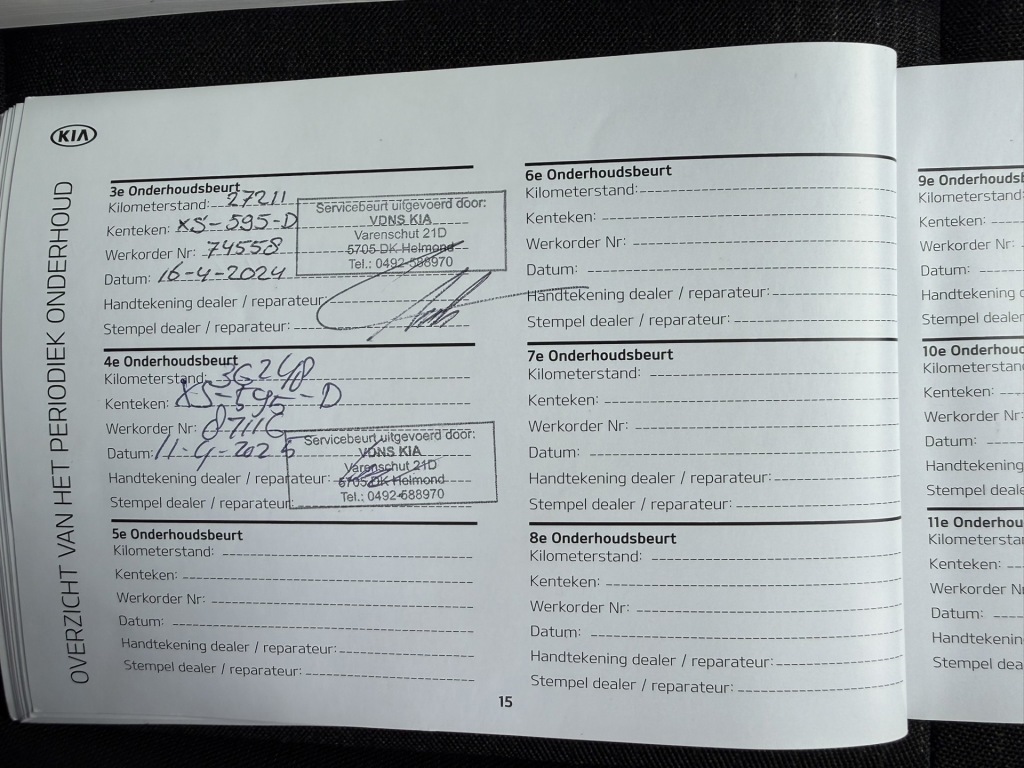 KIA
OVERZICHT VAN HET PERIODIEK ONDERHOUD
3e Onderhoudsbeurt
Kilometerstand: 27211
Kenteken: XS-595-D
Werkorder Nr: 74558
Datum: 16-4-2024
Handtekening dealer / reparateur:
Stempel dealer / reparateur:
Servicebeurt uitgevoerd door:
VDNS KIA
Varenschut 21D
5705 DK Helmond
Tel.: 0492-588970
4e Onderhoudsbeurt
Kilometerstand: 36248
Kenteken: XS-595-D
Werkorder Nr:
Datum: 11-4-2025
Handtekening dealer / reparateur:
Stempel dealer / reparateur:
Servicebeurt uitgevoerd door:
VDNS KIA
Varenschut 21D
5705 DK Helmond
Tel.: 0492-588970
5e Onderhoudsbeurt
Kilometerstand:
Kenteken:
Werkorder Nr:
Datum:
Handtekening dealer / reparateur:
Stempel dealer / reparateur:
6e Onderhoudsbeurt
Kilometerstand:
Kenteken:
Werkorder Nr:
Datum:
Handtekening dealer / reparateur:
Stempel dealer / reparateur:
7e Onderhoudsbeurt
Kilometerstand:
Kenteken:
Werkorder Nr:
Datum:
Handtekening dealer / reparateur:
Stempel dealer / reparateur:
8e Onderhoudsbeurt
Kilometerstand:
Kenteken:
Werkorder Nr:
Datum:
Handtekening dealer / reparateur:
Stempel dealer / reparateur:
15
9e Onderhouds
Kilometerstand:
Kenteken:
Werkorder Nr:
Datum:
Handtekening
Stempel deal
10e Onderhou
Kilometerstan
Kenteken:
Werkorder Nr
Datum:
Handtekening
Stempel deale
11e Onderhou
Kilometerstan
Kenteken:
Werkorder N
Datum:
Handtekenin
Stempel dea